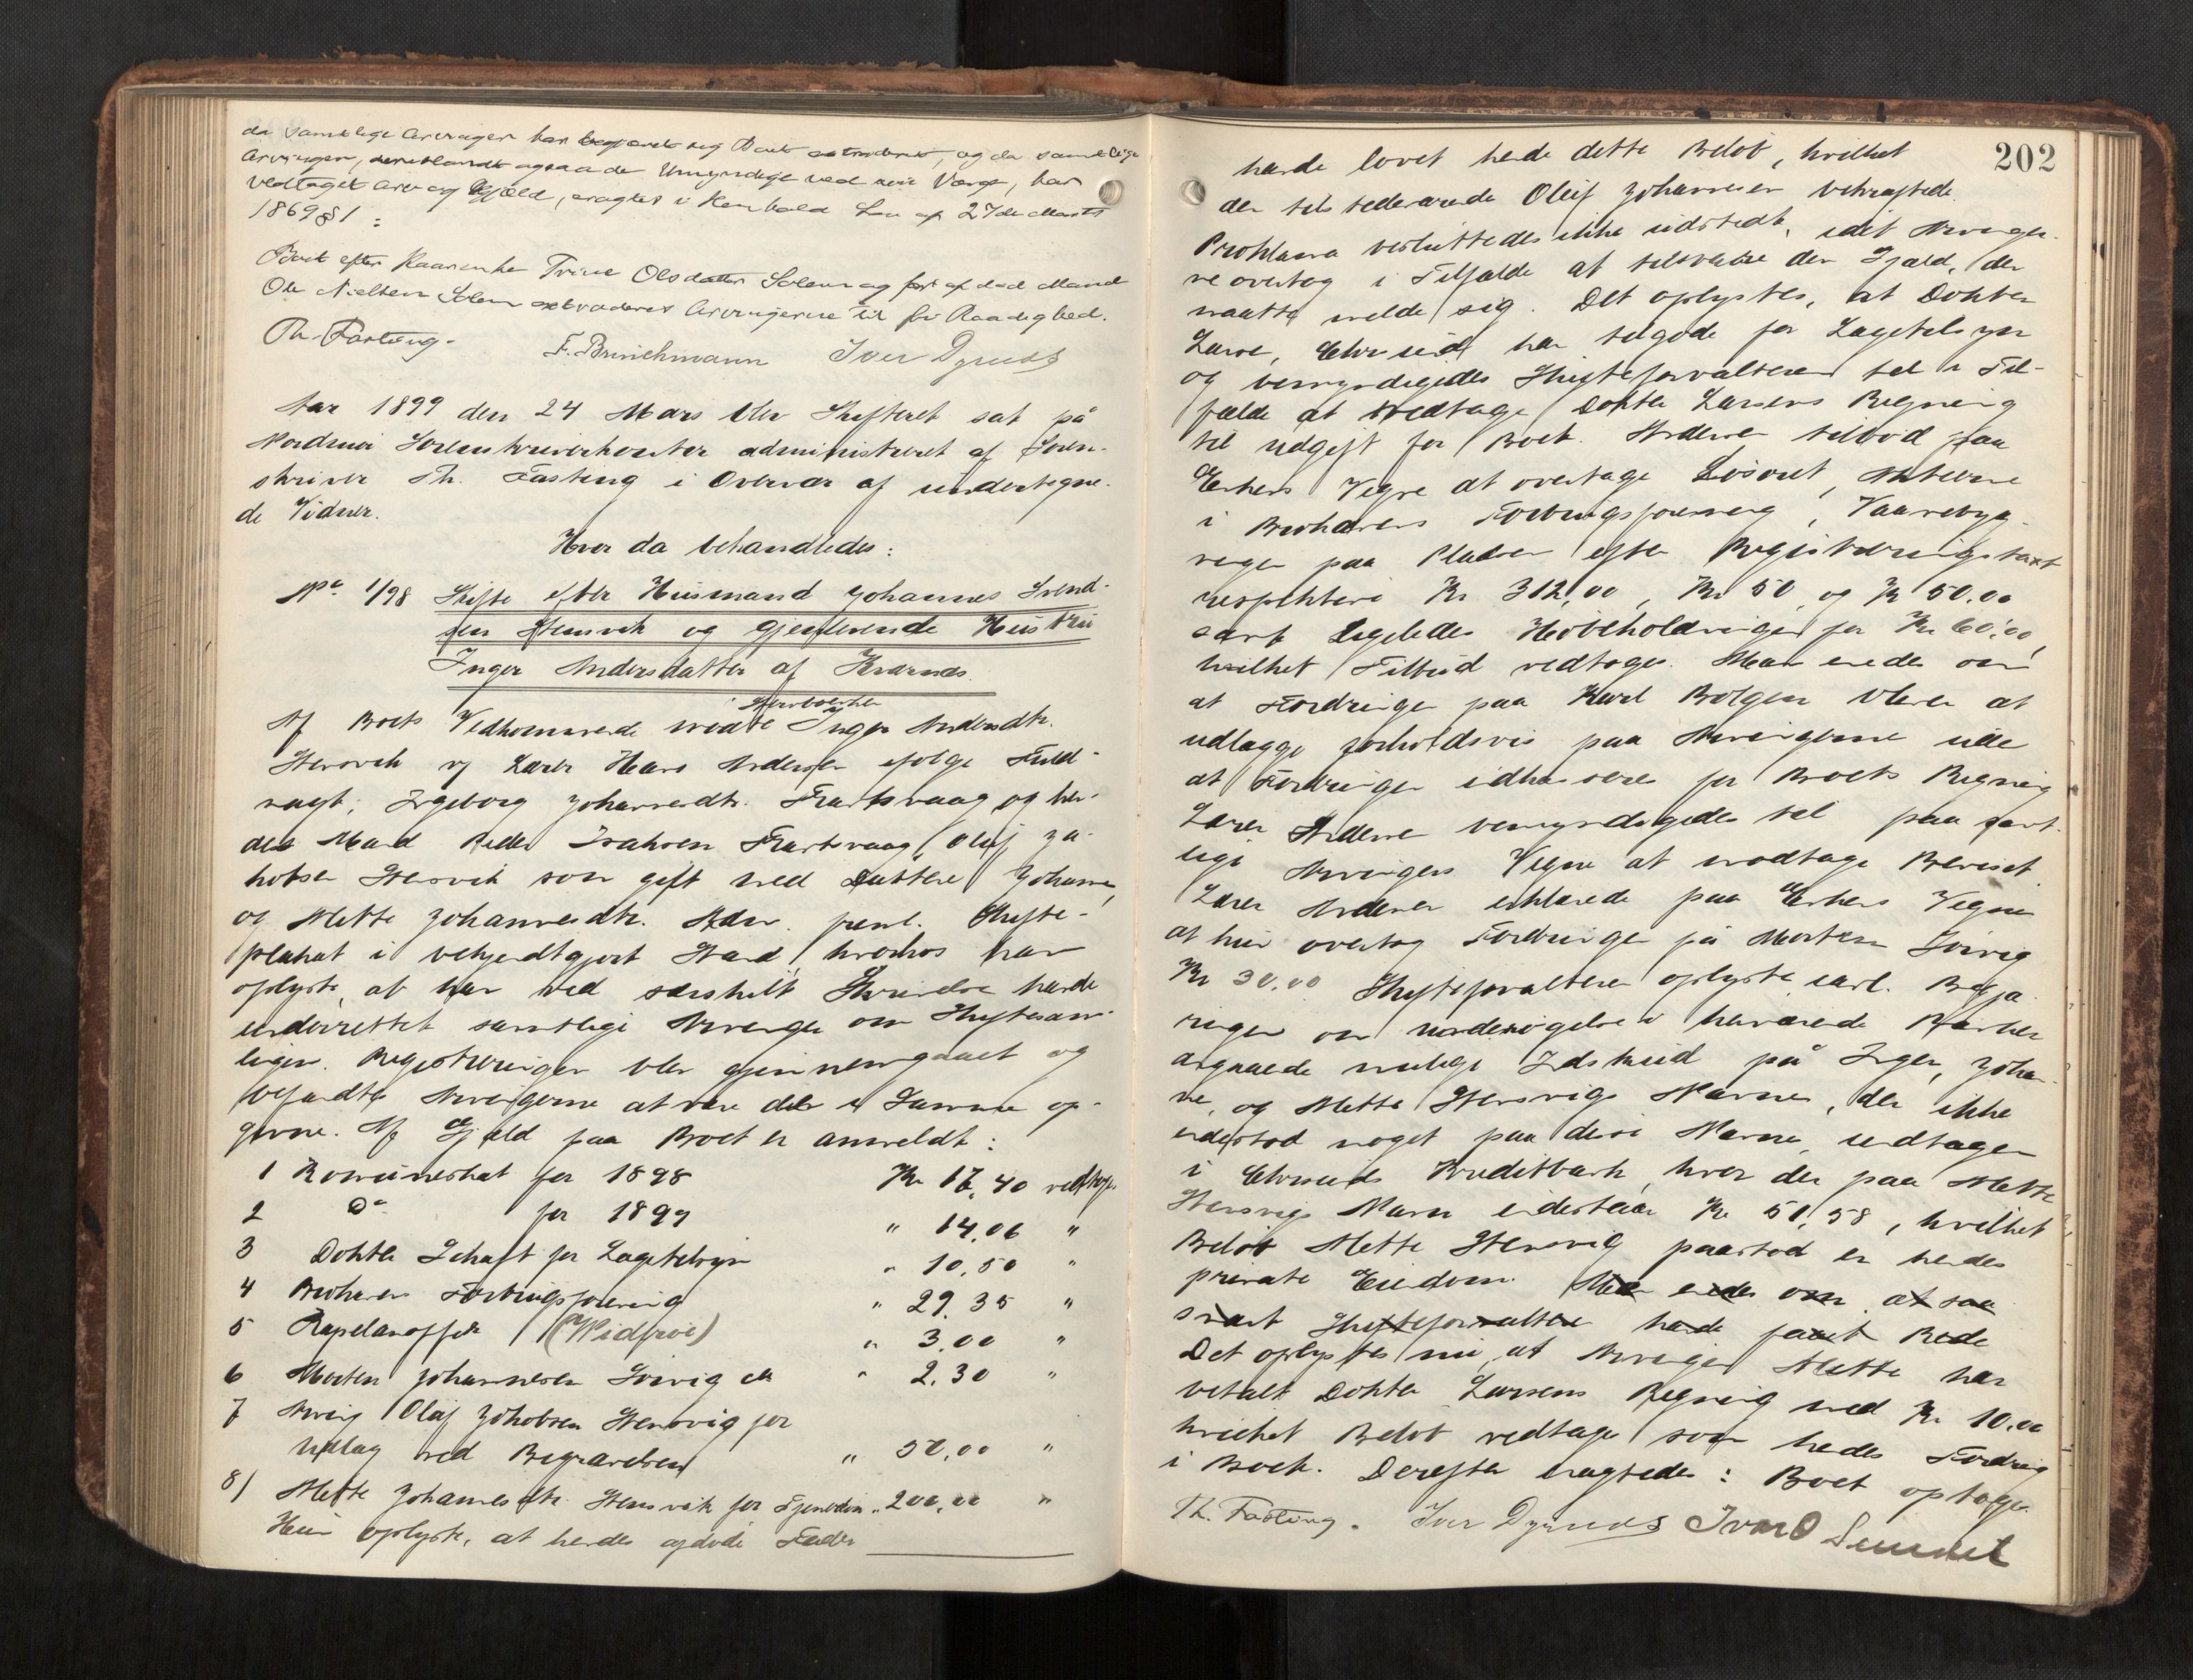 da samtlige Arvinger har begjæret sig Boet extraderet, og da samtlige
Arvinger, deriblandt ogsaa de Umyndige ved sin Værge, har
vedtaget Arv og Gjæld, eragtes i Henhold Lov af 27de Marts
1869 § 1:
Boet efter Kaarenke Trine Olsdatter Solem og før afdød Mand
Ole Nielsen Solem extraderes Arvingerne til fri Raadighed.
Th. Fasting. F. Brinchmann Iver Dyrnes
Aar 1899 den 24 Mars blev Skifteret sat på
Nordmør Sorenskriverkontor administreret af Soren-
skriver Th. Fasting i Overvær af undertegne-
de Vidner.
Hvor da behandledes:
No 1/98 Skifte efter Husmand Johannes Svend-
sen Stensvik og gjenlevende Hustru
Inger Andersdatter af Kvernes.
Af Boets Vedkommende mødte Inger Andersdtr.
Stensvik og Lærer Hans Andersen ifølge Fuld-
magt, Ingeborg Johannesdtr. Frartsvaag og hen-
des Mand Peder Isaksen Frartsvaag, Oluf Ja-
kobsen Stensvik som gift med Datteren Johanna,
og Mette Johannesdtr. Adm. freml. Skifte-
plakat i bekjendtgjort Stand, hvorhos han
oplyste, at han ved særskilt Skrivelse havde
underrettet samtlige Arvinger om Skiftesam-
lingen. Registreringen blev gjennemgaaet og
befandtes Arvingerne at være de i Samme op-
givne. Af Gjæld paa Boet er anmeldt:
1 Komuneskat for 1898 Kr 17,40 vedtoges
2 Do for 1899 " 14,06 "
3 Dokter Schaft for Lægetilsyn " 10,50 "
4 Bruhavns Forbrugsforening " 29,35 "
5 Kapelanoffer (Widsvei) " 3,00 "
6 Morten Johannesen Sørvig do " 2,30 "
7 Arving Oluf Jakobsen Stensvig for
Udlæg ved Begravelsen " 50,00 "
8) Mette Johannesdtr. Stensvik for Tjeneste " 200,00 "
Hun oplyste, at hendes afdøde Fader
202
havde lovet hende dette Beløb, hvilket
den tilstedeværende Oluf Johannesen bekræftede.
Proklama besluttedes ikke udstedt, idet Arvinger-
ne overtog i Tilfælde at tilsvare den Gjæld, der
maatte melde sig. Det oplystes, at Dokter
Larsen, Chrsund har tilgode for Lægetilsyn
og bemyndigedes Skifteforvalteren til i Til-
fælde at vedtage Dokter Larsens Regning
til udgift for Boet. Andersen tilbød paa
Enkens Vegne at overtage Løsøret, Aktierne
i Bruhavns Forbrugsforening, Vaaningsbyg-
ningen paa Pladsen efter Registreringstaxt
respektive Kr 312,00, Kr 50 og Kr 50.00
samt ligeledes Høbeholdningen for Kr 60,00,
hvilket Tilbud vedtoges. Man enedes om
at Fordringen paa Karl Bolgen bliver at
udlægge forholdsvis paa Arvingerne uden
at Fordringen inkasseres for Boets Regning
Lærer Andersen bemyndigedes til paa samt-
lige Arvingers Vegne at modtage Beviset.
Lærer Andersen erklærede paa Enkens Vegne
at hun overtog Fordringen på Morten Sørvig
Kr 30,00 Skifteforvalteren oplyste iael. Begjæ-
ringen om undersøgelse i herværende Banker
angaaende mulige Indskud på Inger, Johan-
ne, og Mette Stensvigs Navne, der ikke
indestod noget paa disse Navne, undtagen
i Chrsunds Kreditbank, hvor der paa Mette
Stensvigs Navn indestaar Kr 51,58, hvilket
Beløb Mette Stensvig paastod er hendes
private Eiendom. Man enedes om at saa
snart Skifteforvalteren havde faaet Rede
Det oplystes nu, at Arvingen Mette har
betalt Dokter Larsens Regning med Kr 10.00
hvilket Beløb vedtoges som hendes Fordring
i Boet. Derefter eragtedes: Boet optages.
Th. Fasting. Iver Dyrnes Ivar O